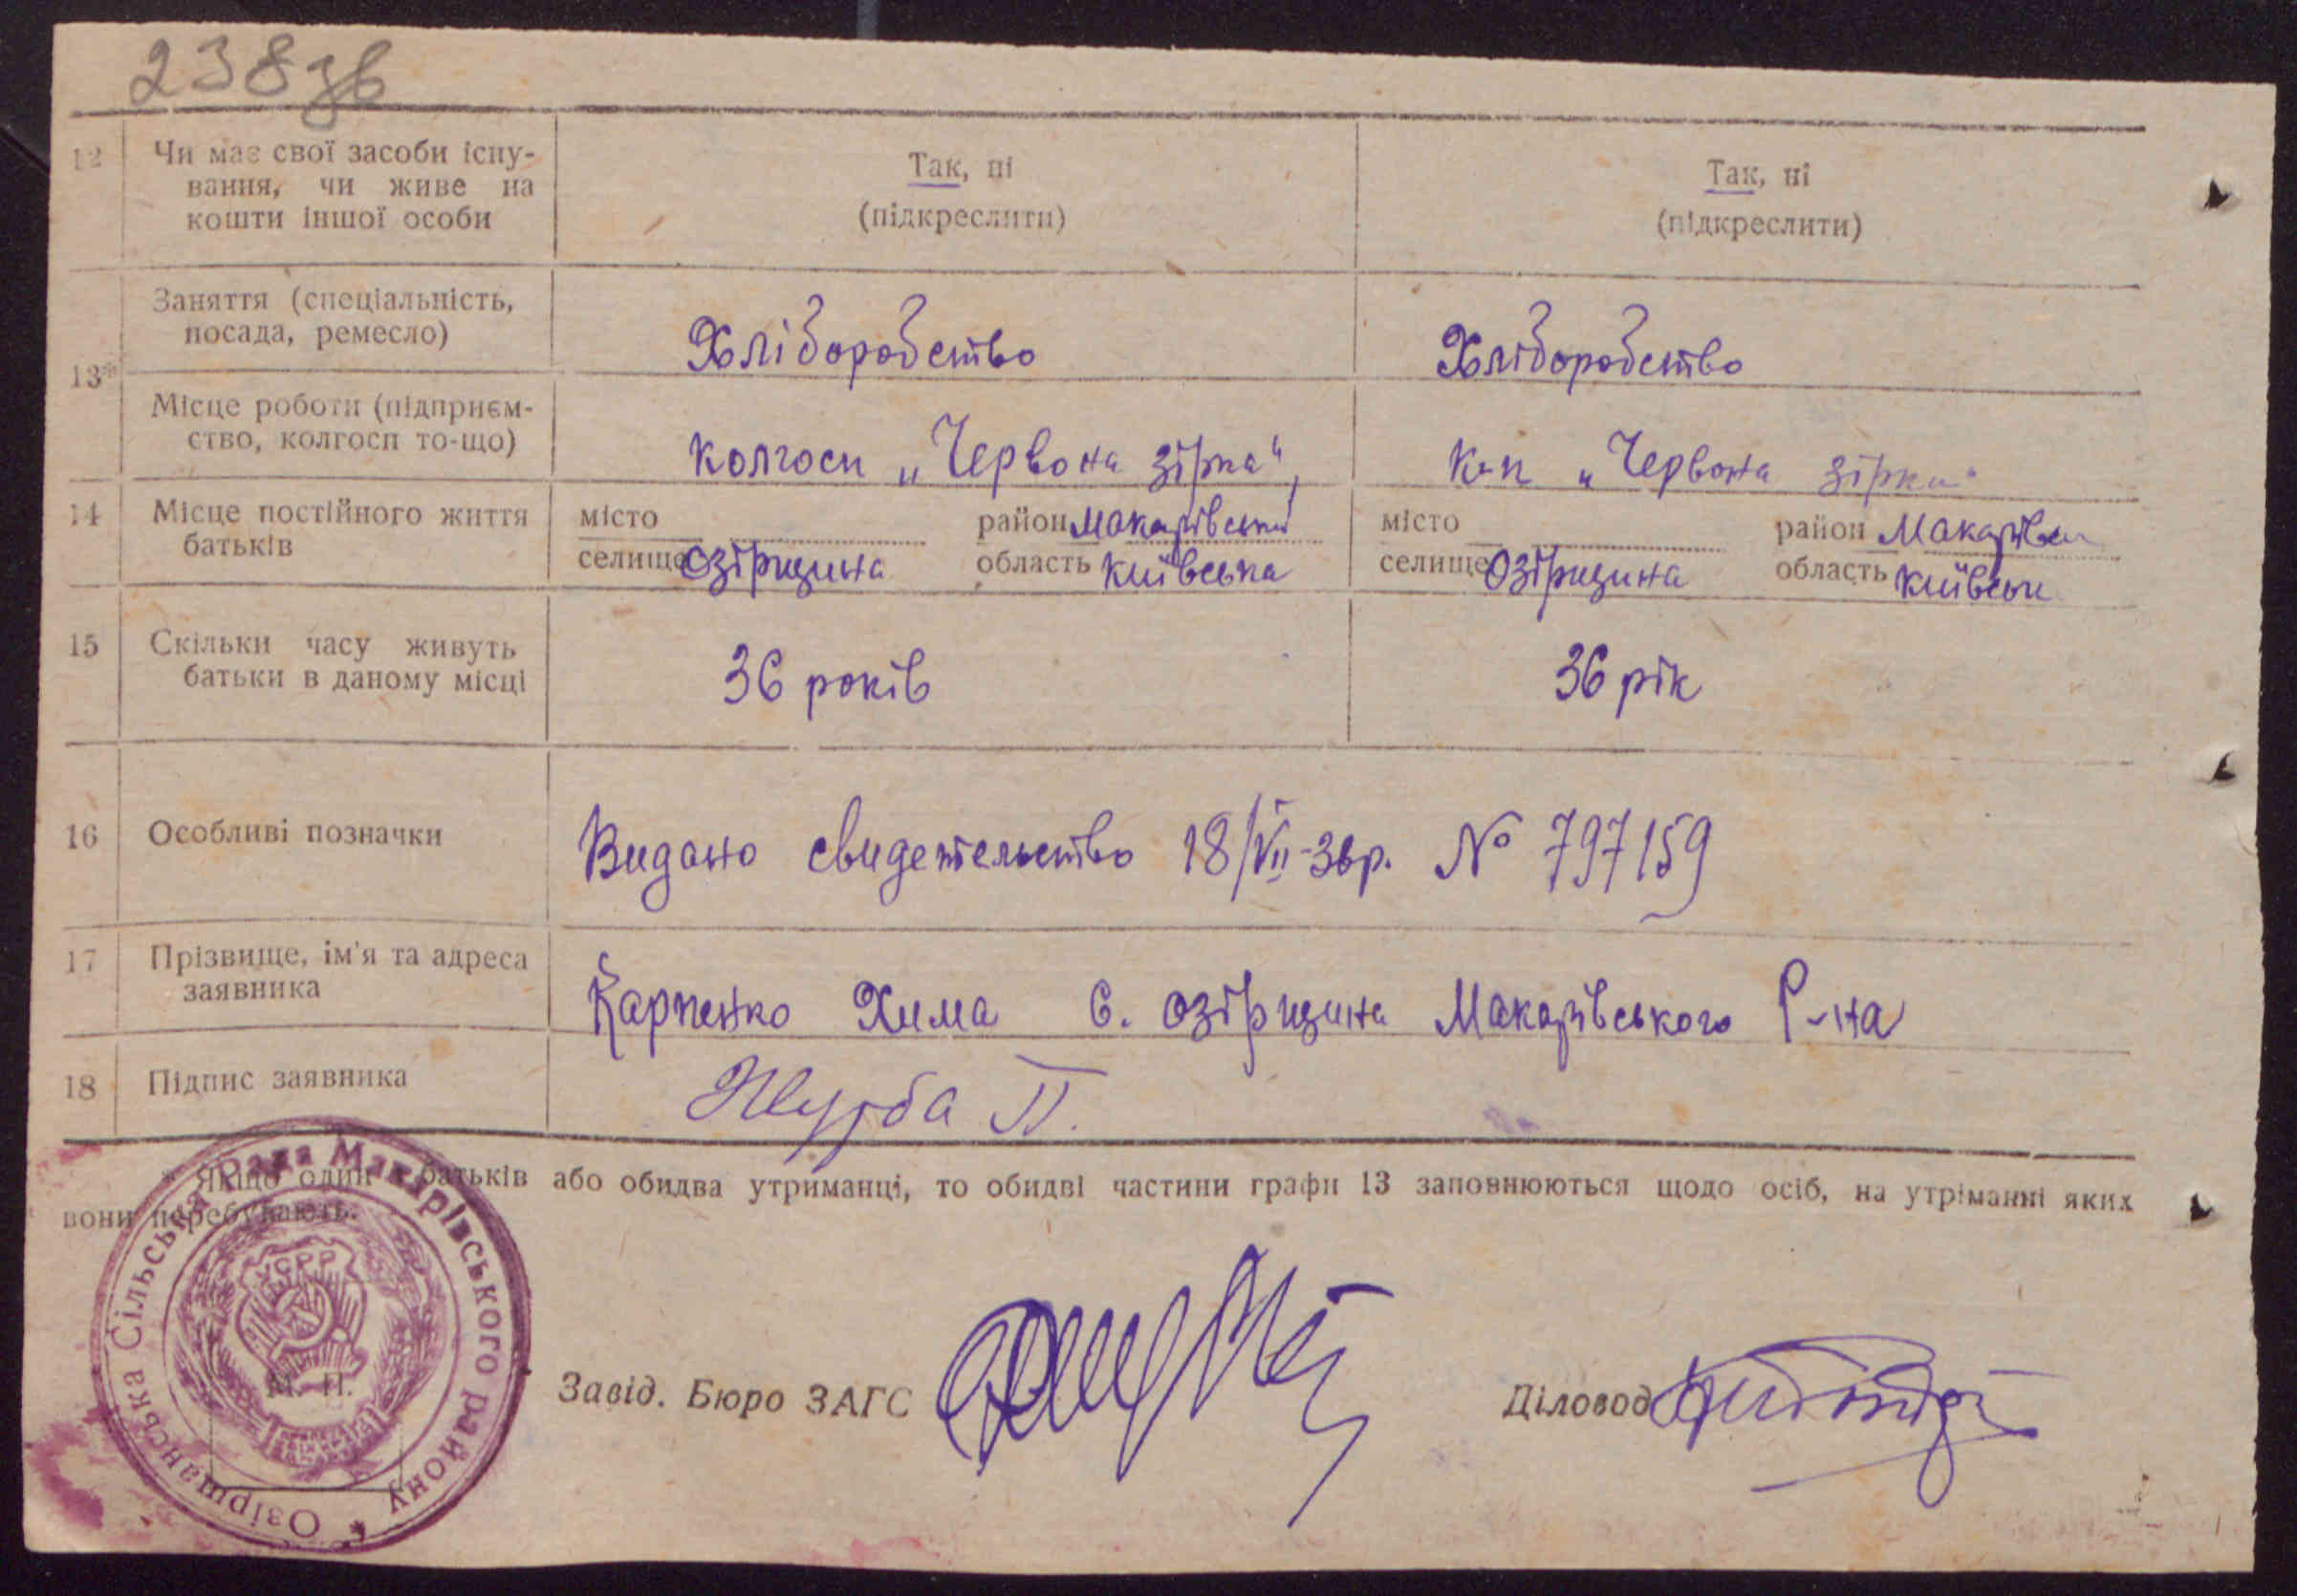 238зв
12 Чи має свої засоби існу-
вання, чи живе на
кошти іншої особи
Так, ні
(підкреслити)
Так, ні
(підкреслити)
13*
Заняття (спеціальність,
посада, ремесло)
Хліборобство
Хліборобство
Місце роботи (підприєм-
ство, колгосп то-що)
колгосп „Червона зірка“,
к-п „Червона зірка“
14 Місце постійного життя
батьків
місто район Макарівський
селище Озірщина область Київська
місто район Макарівськ
селище Озірщина область Київськ
15 Скільки часу живуть
батьки в даному місці
36 років
36 рік
16 Особливі позначки
Видано свидетельство 18/VII-36р. № 797159
17 Прізвище, ім'я та адреса
заявника
Карпенко Хима с. Озірщина Макарівського Р-на
18 Підпис заявника
Журба П.
* Якщо один з батьків або обидва утриманці, то обидві частини графи 13 заповнюються щодо осіб, на утріманні яких
вони перебувають.
Озірщанська Сільська Рада Макарівського району *
УСРР
М. П.
Завід. Бюро ЗАГС
Діловод